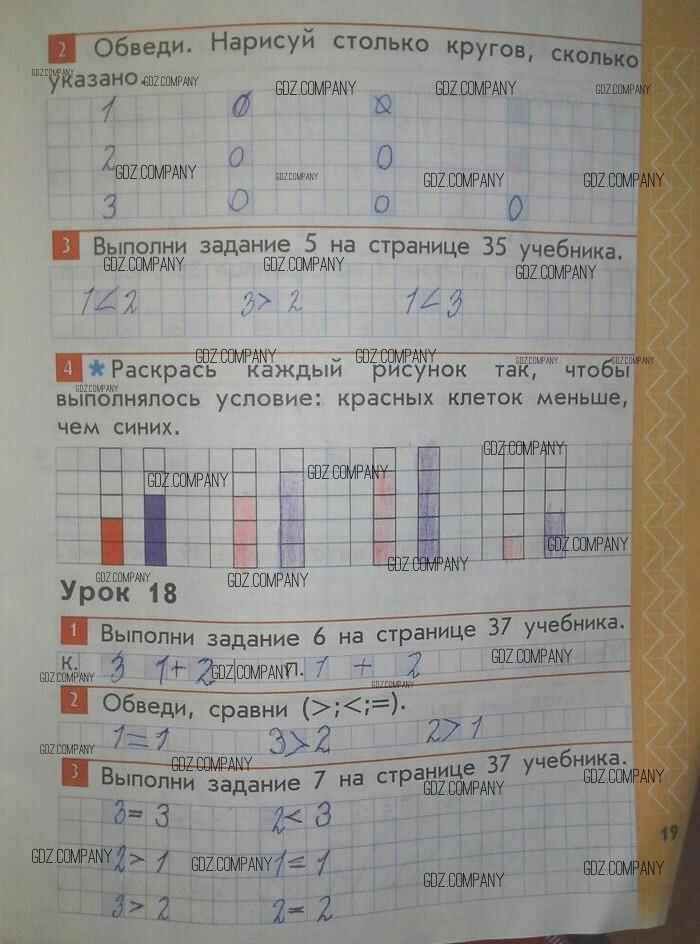 2 Обведи. Нарисуй столько кругов, сколько
GDZ.COMPANY указано. GDZ.COMPANY GDZ.COMPANY GDZ.COMPANY GDZ.COMPANY
1 0 0
2 GDZ.COMPANY 0 GDZ.COMPANY 0 GDZ.COMPANY GDZ.COMPANY
3 0 0 0
3 Выполни задание 5 на странице 35 учебника.
GDZ.COMPANY GDZ.COMPANY GDZ.COMPANY
1<2 3>2 1<3
GDZ.COMPANY GDZ.COMPANY GDZ.COMPANY GDZ.COMPANY
4 * Раскрась каждый рисунок так, чтобы
GDZ.COMPANY
выполнялось условие: красных клеток меньше,
чем синих.
GDZ.COMPANY
GDZ.COMPANY GDZ.COMPANY
GDZ.COMPANY
GDZ.COMPANY GDZ.COMPANY GDZ.COMPANY
Урок 18
1 Выполни задание 6 на странице 37 учебника.
К. 3 1+2 GDZ.COMPANY П. 1 + 2 GDZ.COMPANY
GDZ.COMPANY GDZ.COMPANY
2 Обведи, сравни (>;<;=).
1=1 3>2 2>1
GDZ.COMPANY GDZ.COMPANY
3 Выполни задание 7 на странице 37 учебника.
GDZ.COMPANY GDZ.COMPANY
3=3 2<3
19
GDZ.COMPANY 2>1 GDZ.COMPANY 1=1 GDZ.COMPANY GDZ.COMPANY
3>2 2=2